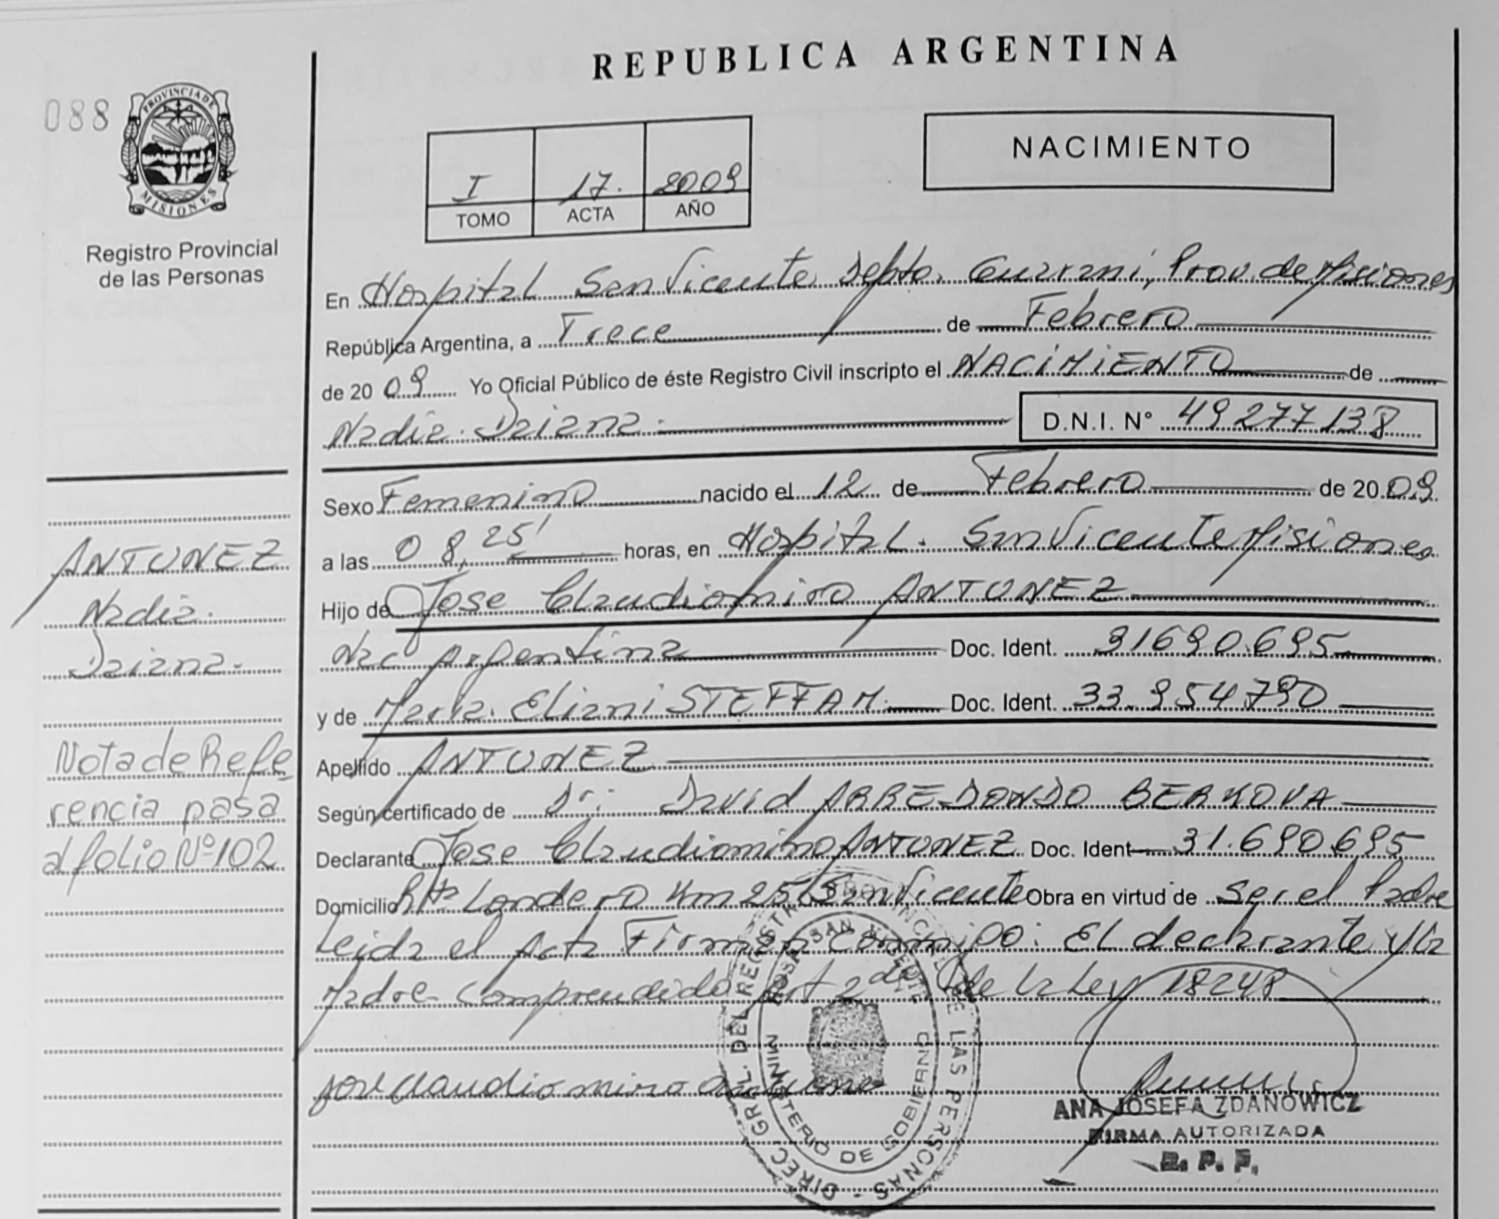 REPUBLICA ARGENTINA
088
PROVINCIA DE MISIONES
Registro Provincial
de las Personas
I 17. 2009
TOMO ACTA AÑO
NACIMIENTO
En Hospital San Vicente Depto. Guarani, Prov. de Misiones
República Argentina, a Trece de Febrero
de 2009 Yo Oficial Público de éste Registro Civil inscripto el NACIMIENTO de
Nadia Daiana D.N.I. N° 49277138
Sexo Femenino nacido el 12 de Febrero de 2009
a las 08,25' horas, en Hospital. San Vicente Misiones
Hijo de Jose Claudiomiro ANTUNEZ
Nac Argentina Doc. Ident. 31690.695
y de Maria Eliani STEFFAN Doc. Ident. 33.954790
Apellido ANTUNEZ
Según certificado de Dr: David ARREDONDO BERNOVA
Declarante Jose Claudiomiro ANTUNEZ Doc. Ident 31.690695
Domicilio Londero Km 25 San Vicente Obra en virtud de Ser el Padre
Leida el Acta Firman conmigo: El declarante y la
Madre comprendido Art 2 de la Ley 18248
Jose Claudiomiro Antunez
ANTUNEZ
Nadia
Daiana.
Nota de Refe
rencia pasa
al folio N° 102
DIREC. GRAL. DEL REGISTRO PROVINCIAL DE LAS PERSONAS
SAN VICENTE
MINISTERIO DE GOBIERNO
ANA JOSEFA ZDANOWICZ
FIRMA AUTORIZADA
R. P. P.